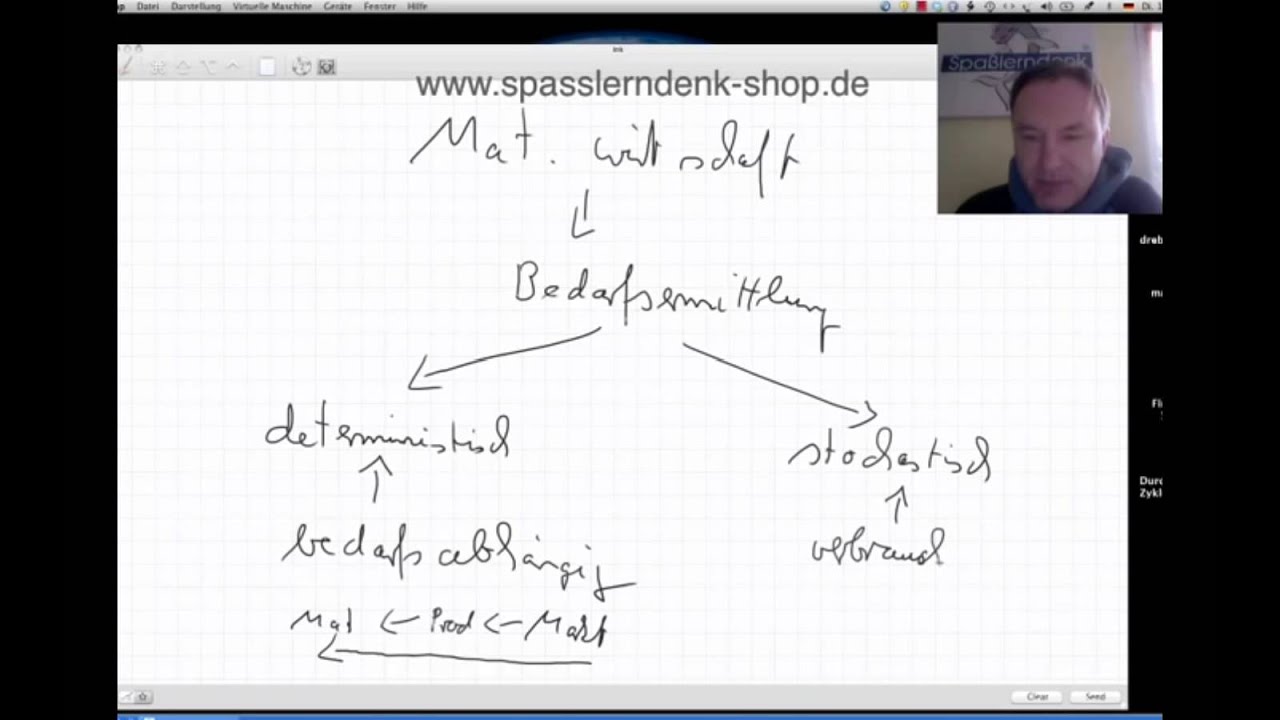 Datei Darstellung Virtuelle Maschine Geräte Fenster Hilfe
Ink
Spaßlerndenk
www.spasslerndenk-shop.de
Mat. wirtschaft
Bedarfsermittlung
deterministisch
stochastisch
bedarfsabhängig
verbrauch
Mat ← Prod ← Markt
Durc
Zykl
Clear Send